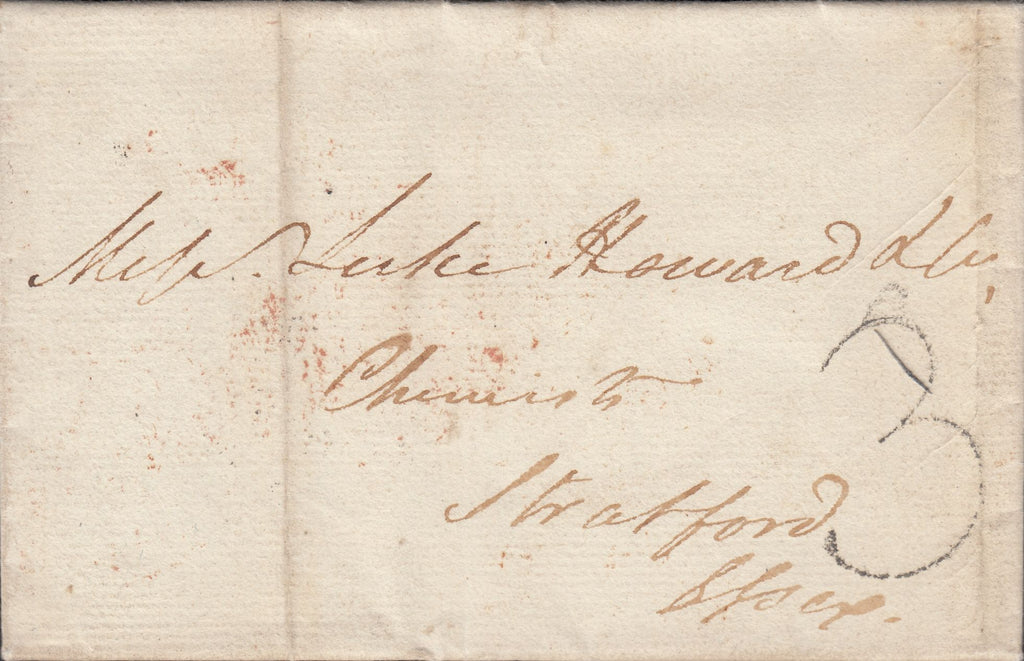 Messrs. Luke Howard & Co,
Chemists
Stratford
Essex.
3